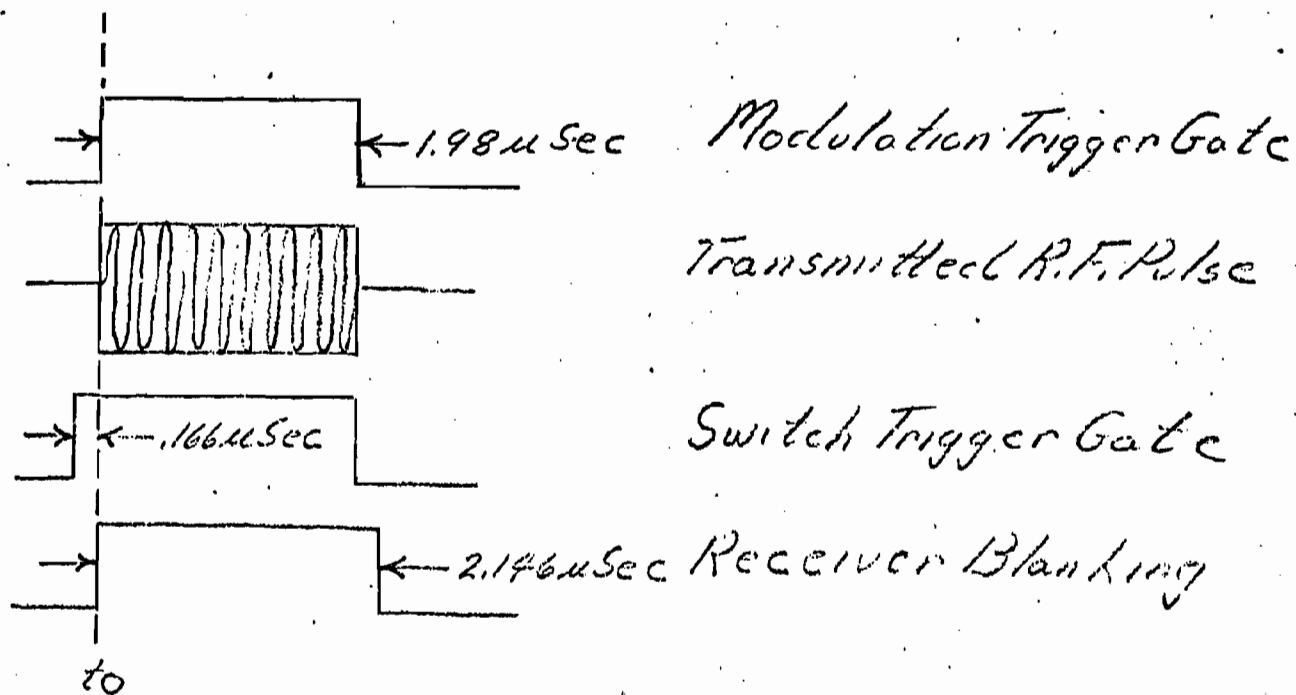 1.98 µSec Modulation Trigger Gate
Transmitted R.F. Pulse
.166 µSec Switch Trigger Gate
2.146 µSec Receiver Blanking
to